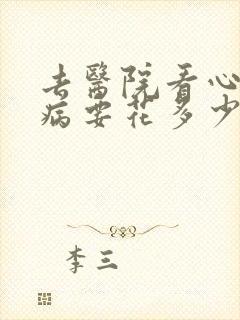 去醫院看心
病要花多少
李三